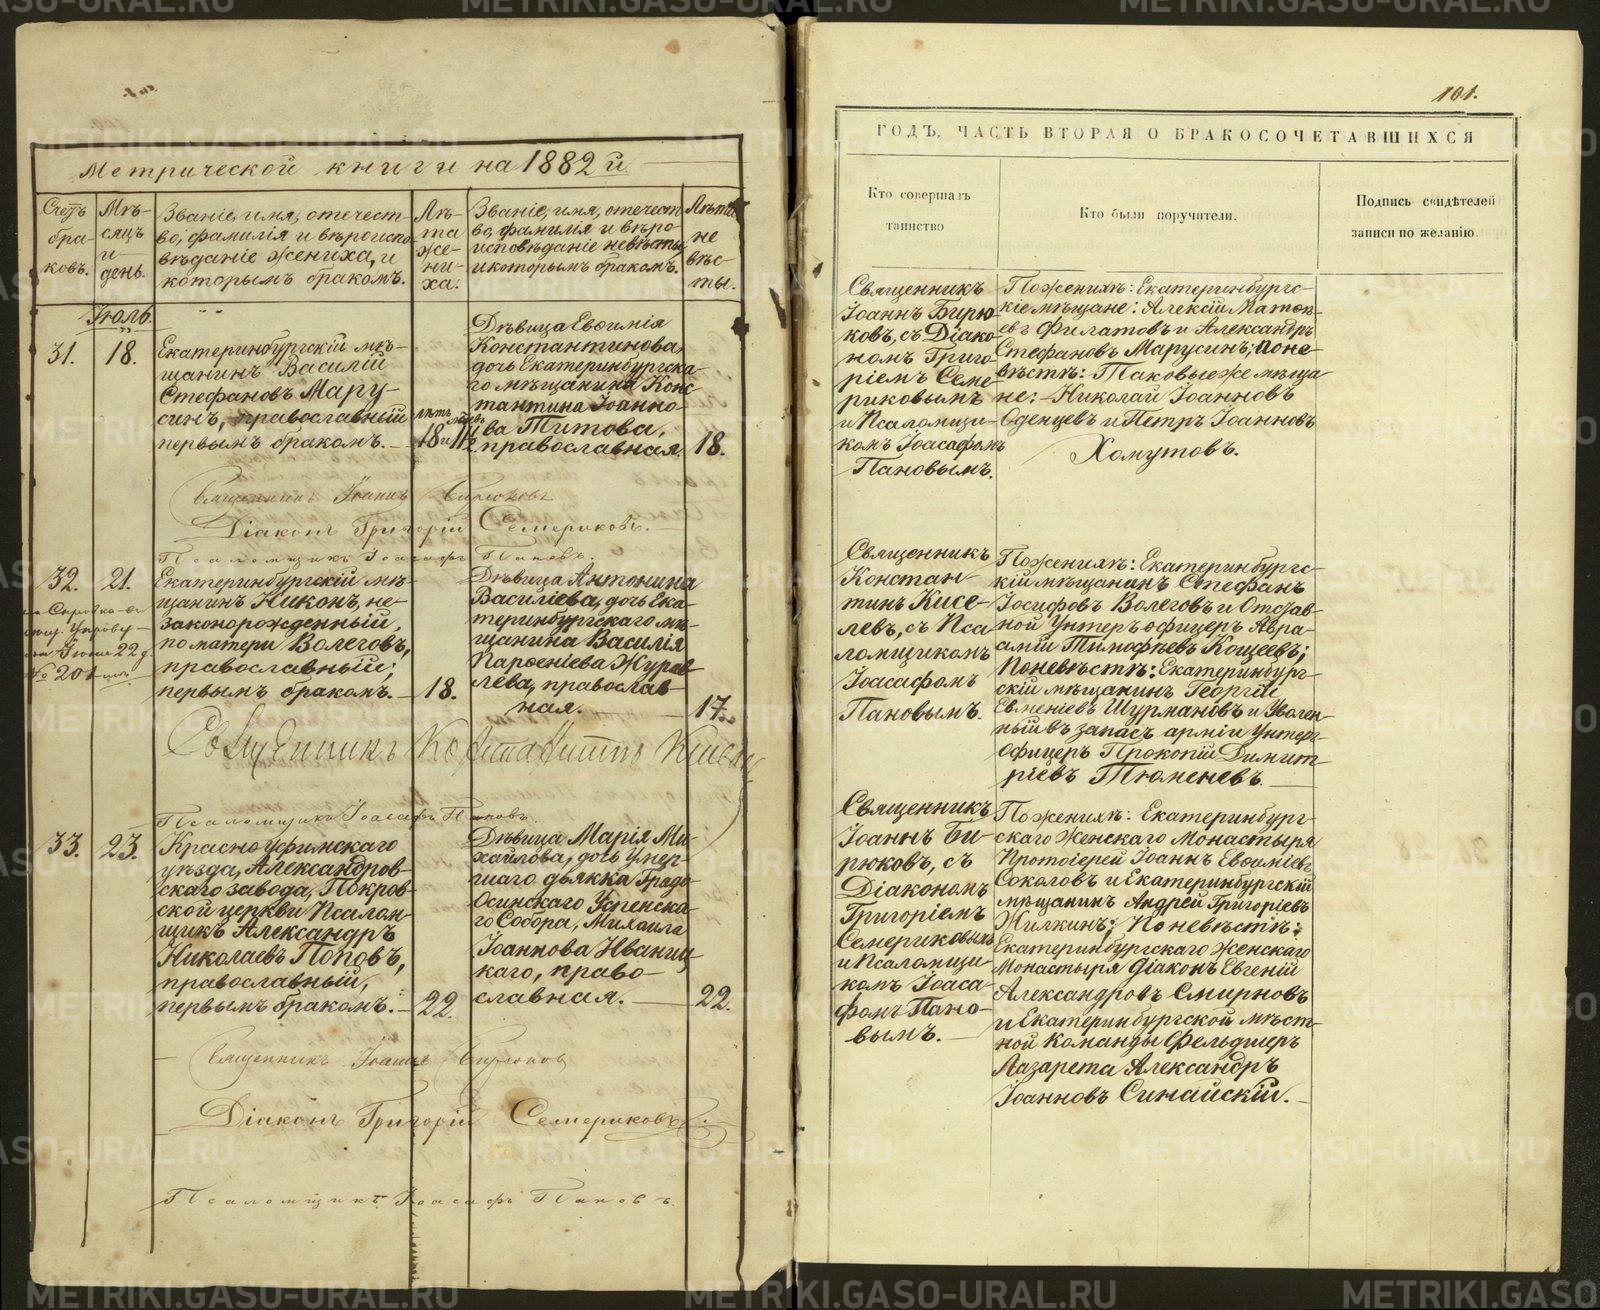 Метрической книги на 1882 й
Счетъ браковъ.
Мѣсяцъ и день.
Званіе, имя, отечест-
во, фамилія и вѣроиспо-
вѣданіе жениха, и
которымъ бракомъ.
Лѣ-
та
же-
ни-
ха.
Званіе, имя, отечест
во, фамилія и вѣро-
исповѣданіе невѣсты
и которымъ бракомъ.
Лѣта
не
вѣс-
ты.
Іюль.
31.
18.
Екатеринбургскій мѣ-
щанинъ Василій
Стефановъ Мару-
синъ, православный
первымъ бракомъ.
лѣтъ
18 и 11½
Дѣвица Евѳимія
Константинова,
дочь Екатеринбургска-
го мѣщанина Конс
тантина Іоанно-
ва Титова,
православная.
18.
Священникъ Іоаннъ Бирюковъ
Діаконъ Григорій Семериковъ.
Псаломщикъ Іоасафъ Пановъ.
32.
21.
22 д.
№ 201
Екатеринбургскій мѣ-
щанинъ Никонъ, не-
законорожденный,
по матери Волеговъ,
православный;
первымъ бракомъ.
18.
Дѣвица Антонина
Василіева, дочь Ека-
теринбургскаго мѣ-
щанина Василія
Парѳеніева Журав
лева, православ-
ная.
17.
Священникъ Константинъ Киселев
Псаломщикъ Іоасафъ Пановъ.
33.
23.
Красноуфимскаго
уѣзда, Александров-
скаго завода, Покров-
ской церкви Псалом-
щикъ Александръ
Николаевъ Поповъ,
православный,
первымъ бракомъ.
22.
Дѣвица Марія Ми-
хаилова, дочь умер-
шаго дьячка Градо-
Осинскаго Успенска-
го Собора, Михаила
Іоаннова Иваниц
каго, право-
славная.
22.
Священникъ Іоаннъ Бирюковъ
Діаконъ Григорій Семериковъ.
Псаломщикъ Іоасафъ Пановъ.
101.
ГОДЪ, ЧАСТЬ ВТОРАЯ О БРАКОСОЧЕТАВШИХСЯ
Кто совершалъ
таинство
Кто были поручители.
Подпись свидѣтелей
записи по желанію.
Священникъ
Іоаннъ Бирю
ковъ, съ Діако
номъ Григо-
ріемъ Семе-
риковымъ
и Псаломщи-
комъ Іоасафомъ
Пановымъ.
По женихѣ: Екатеринбургс-
кіе мѣщане: Алексій Матѳ
евъ Филатовъ и Александръ
Стефановъ Марусинъ; по не
вѣстѣ: Таковые же мѣща
не: Николай Іоанновъ
Оденцевъ и Петръ Іоанновъ
Хомутовъ.
Священникъ
Констан-
тинъ Кисе-
левъ, съ Пса
ломщикомъ
Іоасафомъ
Пановымъ.
По женихѣ: Екатеринбургс-
кій мѣщанинъ Стефанъ
Іосифовъ Волеговъ и Отстав-
ной Унтеръ офицеръ Авра-
амій Тимофѣевъ Кощеевъ;
По невѣстѣ: Екатеринбург-
скій мѣщанинъ Георгій
Евменіевъ Шурмановъ и Уволен-
ный въ запасъ арміи Унтеръ
офицеръ Прокопій Димит-
ріевъ Тюменевъ.
Священникъ
Іоаннъ Би-
рюковъ, съ
Діакономъ
Григоріемъ
Семериковымъ
и Псаломщи-
комъ Іоаса-
фомъ Пано-
вымъ.
По женихѣ: Екатеринбург-
скаго Женскаго Монастыря
Протоіерей Іоаннъ Евѳиміевъ
Соколовъ и Екатеринбургскій
мѣщанинъ Андрей Григоріевъ
Жилкинъ; По невѣстѣ:
Екатеринбургскаго Женскаго
Монастыря Діаконъ Евгеній
Александровъ Смирновъ
и Екатеринбургской мѣст-
ной команды Фельдшеръ
Лазарета Александръ
Іоанновъ Синайскій.
METRIKI.GASO-URAL.RU